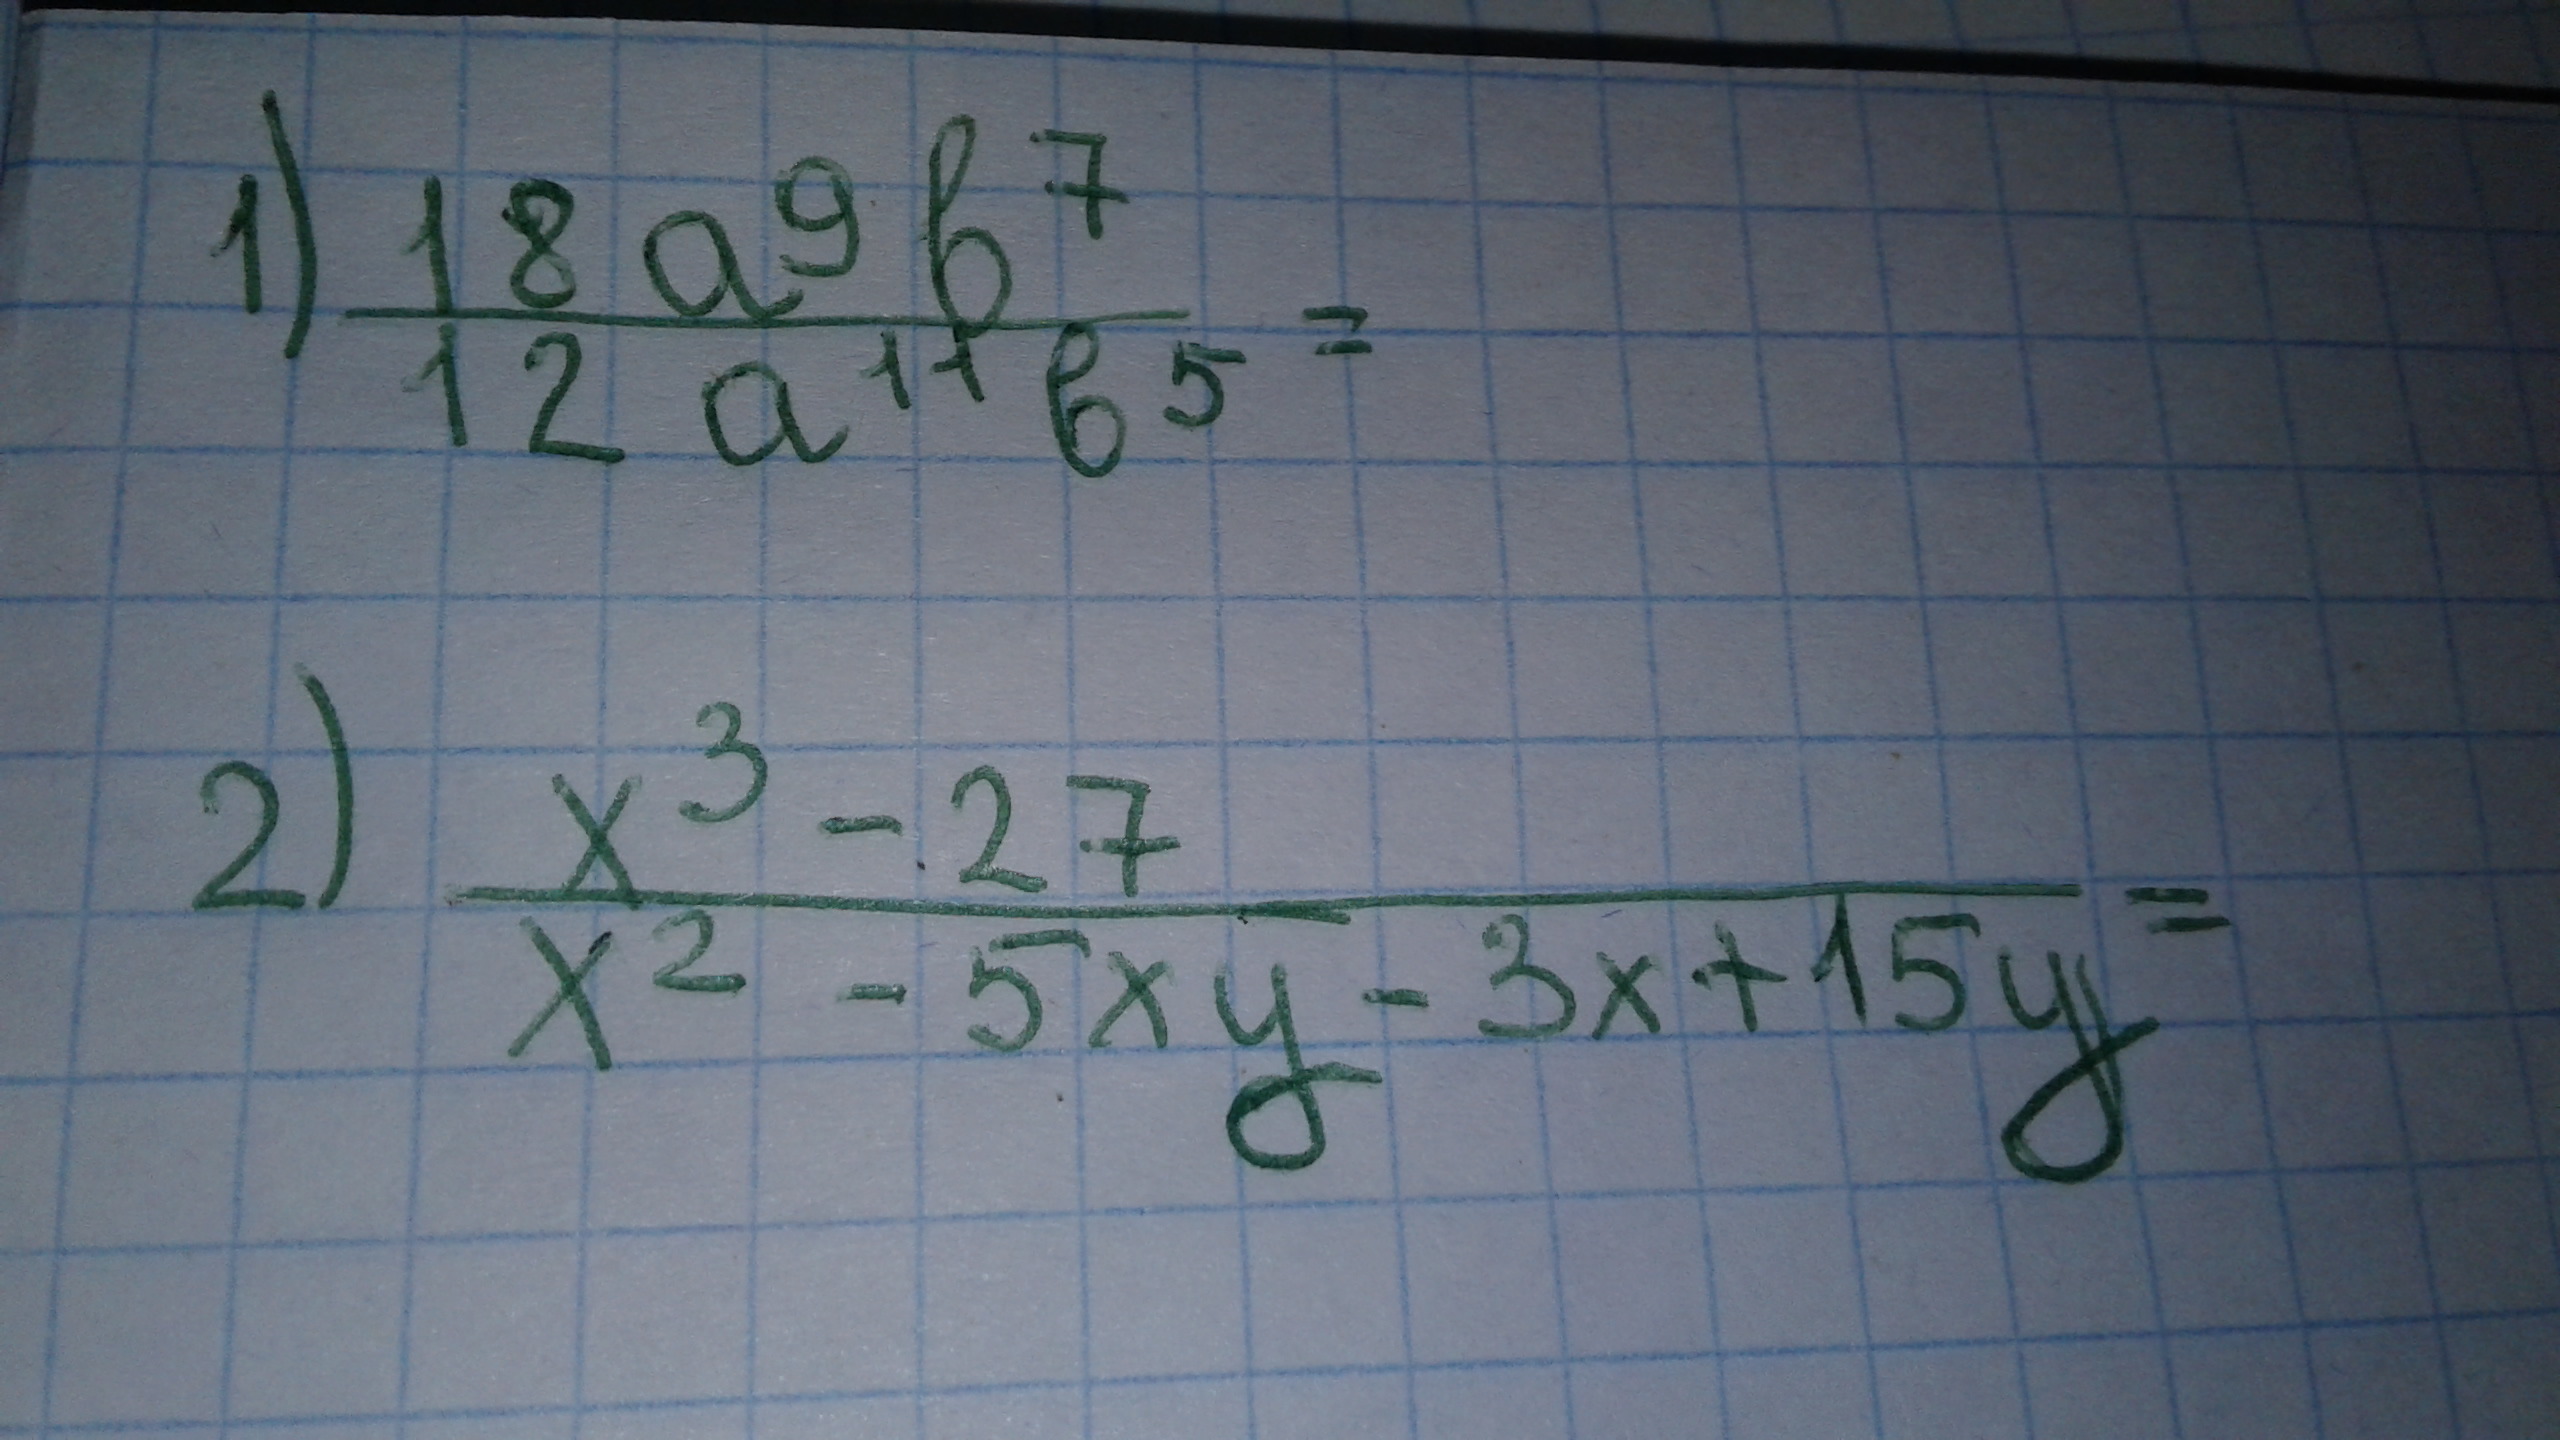 1) 18a⁹b⁷
12a¹¹b⁵ =
2) x³ - 27
x² - 5xy - 3x + 15y =